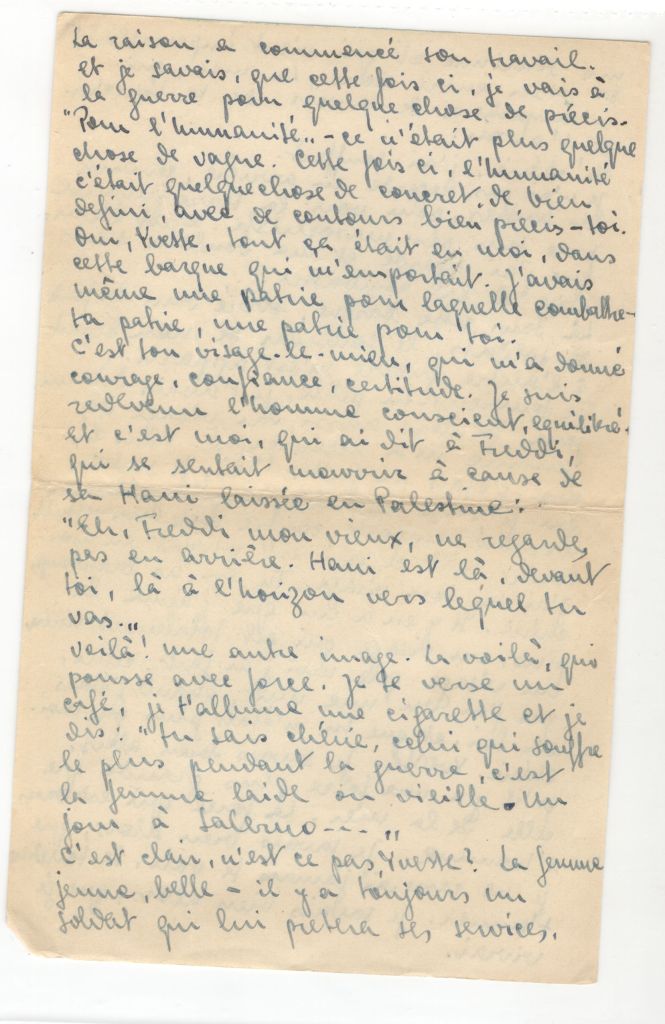 La raison a commencé son travail.
et je savais, que cette fois ci, je vais à
la guerre pour quelque chose de précis.
"Pour l'humanité„ - ce n'était plus quelque
chose de vague. Cette fois ci, l'humanité
c'était quelque chose de concret, de bien
defini, avec de contours bien précis - toi.
Oui, Yveste, tout ça était en moi, dans
cette barque qui m'emportait. J'avais
même une patrie pour laquelle combattre -
ta patrie, une patrie pour toi.
C'est ton visage-le-mien, qui m'a donné
courage, confiance, certitude. Je suis
redevenu l'homme conscient, equilibré.
et c'est moi, qui ai dit à Freddi,
qui se sentait mourrir à cause de
sa Hani laissée en Palestine:
"Eh, Freddi mon vieux, ne regarde
pas en arrière. Hani est là, devant
toi, là à l'horizon vers lequel tu
vas.„
voilà! une autre image. La voilà, qui
pousse avec force. Je te verse un
café, je t'allume une cigarette et je
dis: "Tu sais chérie, celui qui souffre
le plus pendant la guerre, c'est
la femme laide ou vieille. Un
jour à Salerno --- „
C'est clair, n'est ce pas Yveste? La femme
jeune, belle - il y a toujours un
soldat qui lui pretera ses services.